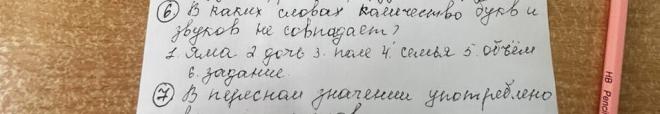 6 В каких словах количество букв и
звуков не совпадает?
1. яма 2 дочь 3. поле 4. семья 5. объём
6. задание.
7 В переснам значении употреблено
HB Penci